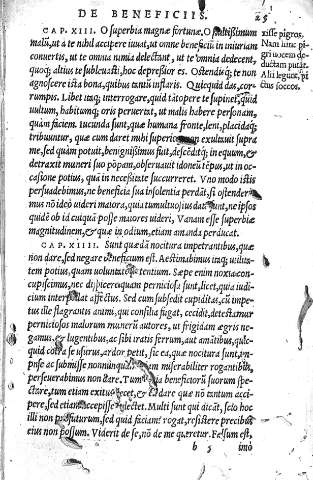 DE BENEFICIIS. 25
CAP. XIII. O superbia magnæ fortunæ, O stultissimum
malũ, ut a te nihil accipere iuuat, ut omne beneficiũ in iniuriam
conuertis, ut te omnia nimia delectant, ut te omnia dedecent,
quoq; altius te subleuasti, hoc depressior es. Ostendisq; te non
agnoscere ista bona, quibus tantũ inflaris. Quicquid das, cor-
rumpis. Libet itaq; interrogare, quid tãtopere te supinet, quid
uultum, habitumq; oris peruertat, ut malis habere personam,
quàm faciem. Iucunda sunt, quæ humana fronte, leni, placidaq;
tribuuntur, quæ cum daret mihi superior, non exultauit supra
me, sed quàm potuit, benignissimus fuit, descẽditq; in æquum, &
detraxit muneri suo põpam, obseruauit idoneũ tẽpus, ut in oc-
casione potius, quàm in necessitate succurreret. Vno modo istis
persuadebimus, ne beneficia sua insolentia perdãt, si ostenderi-
mus nõ ideo uideri maiora, quia tumultuosius data sunt, ne ipsos
quidẽ ob id cuiquã posse maiores uideri, Vanam esse superbiæ
magnitudinem, & quæ in odium, etiam amanda perducat.
CAP. XIIII. Sunt quædã nocitura impetrantibus, quæ
non dare, sed negare beneficium est. Aestimabimus itaq; utilita-
tem potius, quàm uoluntatem petentium. Sæpe enim noxia con-
cupiscimus, nec dispicere quàm perniciosa sunt, licet, quia iudi-
cium interpellat affectus. Sed cum subsedit cupiditas, cũ impe-
tus ille flagrantis animi, qui consilia fugat, cecidit, detestamur
perniciosos malorum munerũ autores, ut frigidam ægris ne-
gamus, & lugentibus, ac sibi iratis ferrum, aut amãtibus, quic-
quid contra se usurus, ardor petit, sic ea, quæ nocitura sunt, im-
pensè ac submissè nonnunquam etiam miserabiliter rogantibus,
perseuerabimus non dare. Tum initia beneficiorũ suorum spe-
ctare, tum etiam exitus decet, & ea dare quæ nõ tantum acci-
pere, sed etiam accepisse delectet. Multi sunt qui dicãt, scio hoc
illi non profuturum, sed quid faciam? rogat, resistere precibus
eius non possum. Viderit de se, nõ de me queretur. Falsum est,
b 5 imò
xisse pigros.
Nam hinc pi-
gri uocem de-
ductam putãt.
Alii legunt, pi-
ctus soccos.